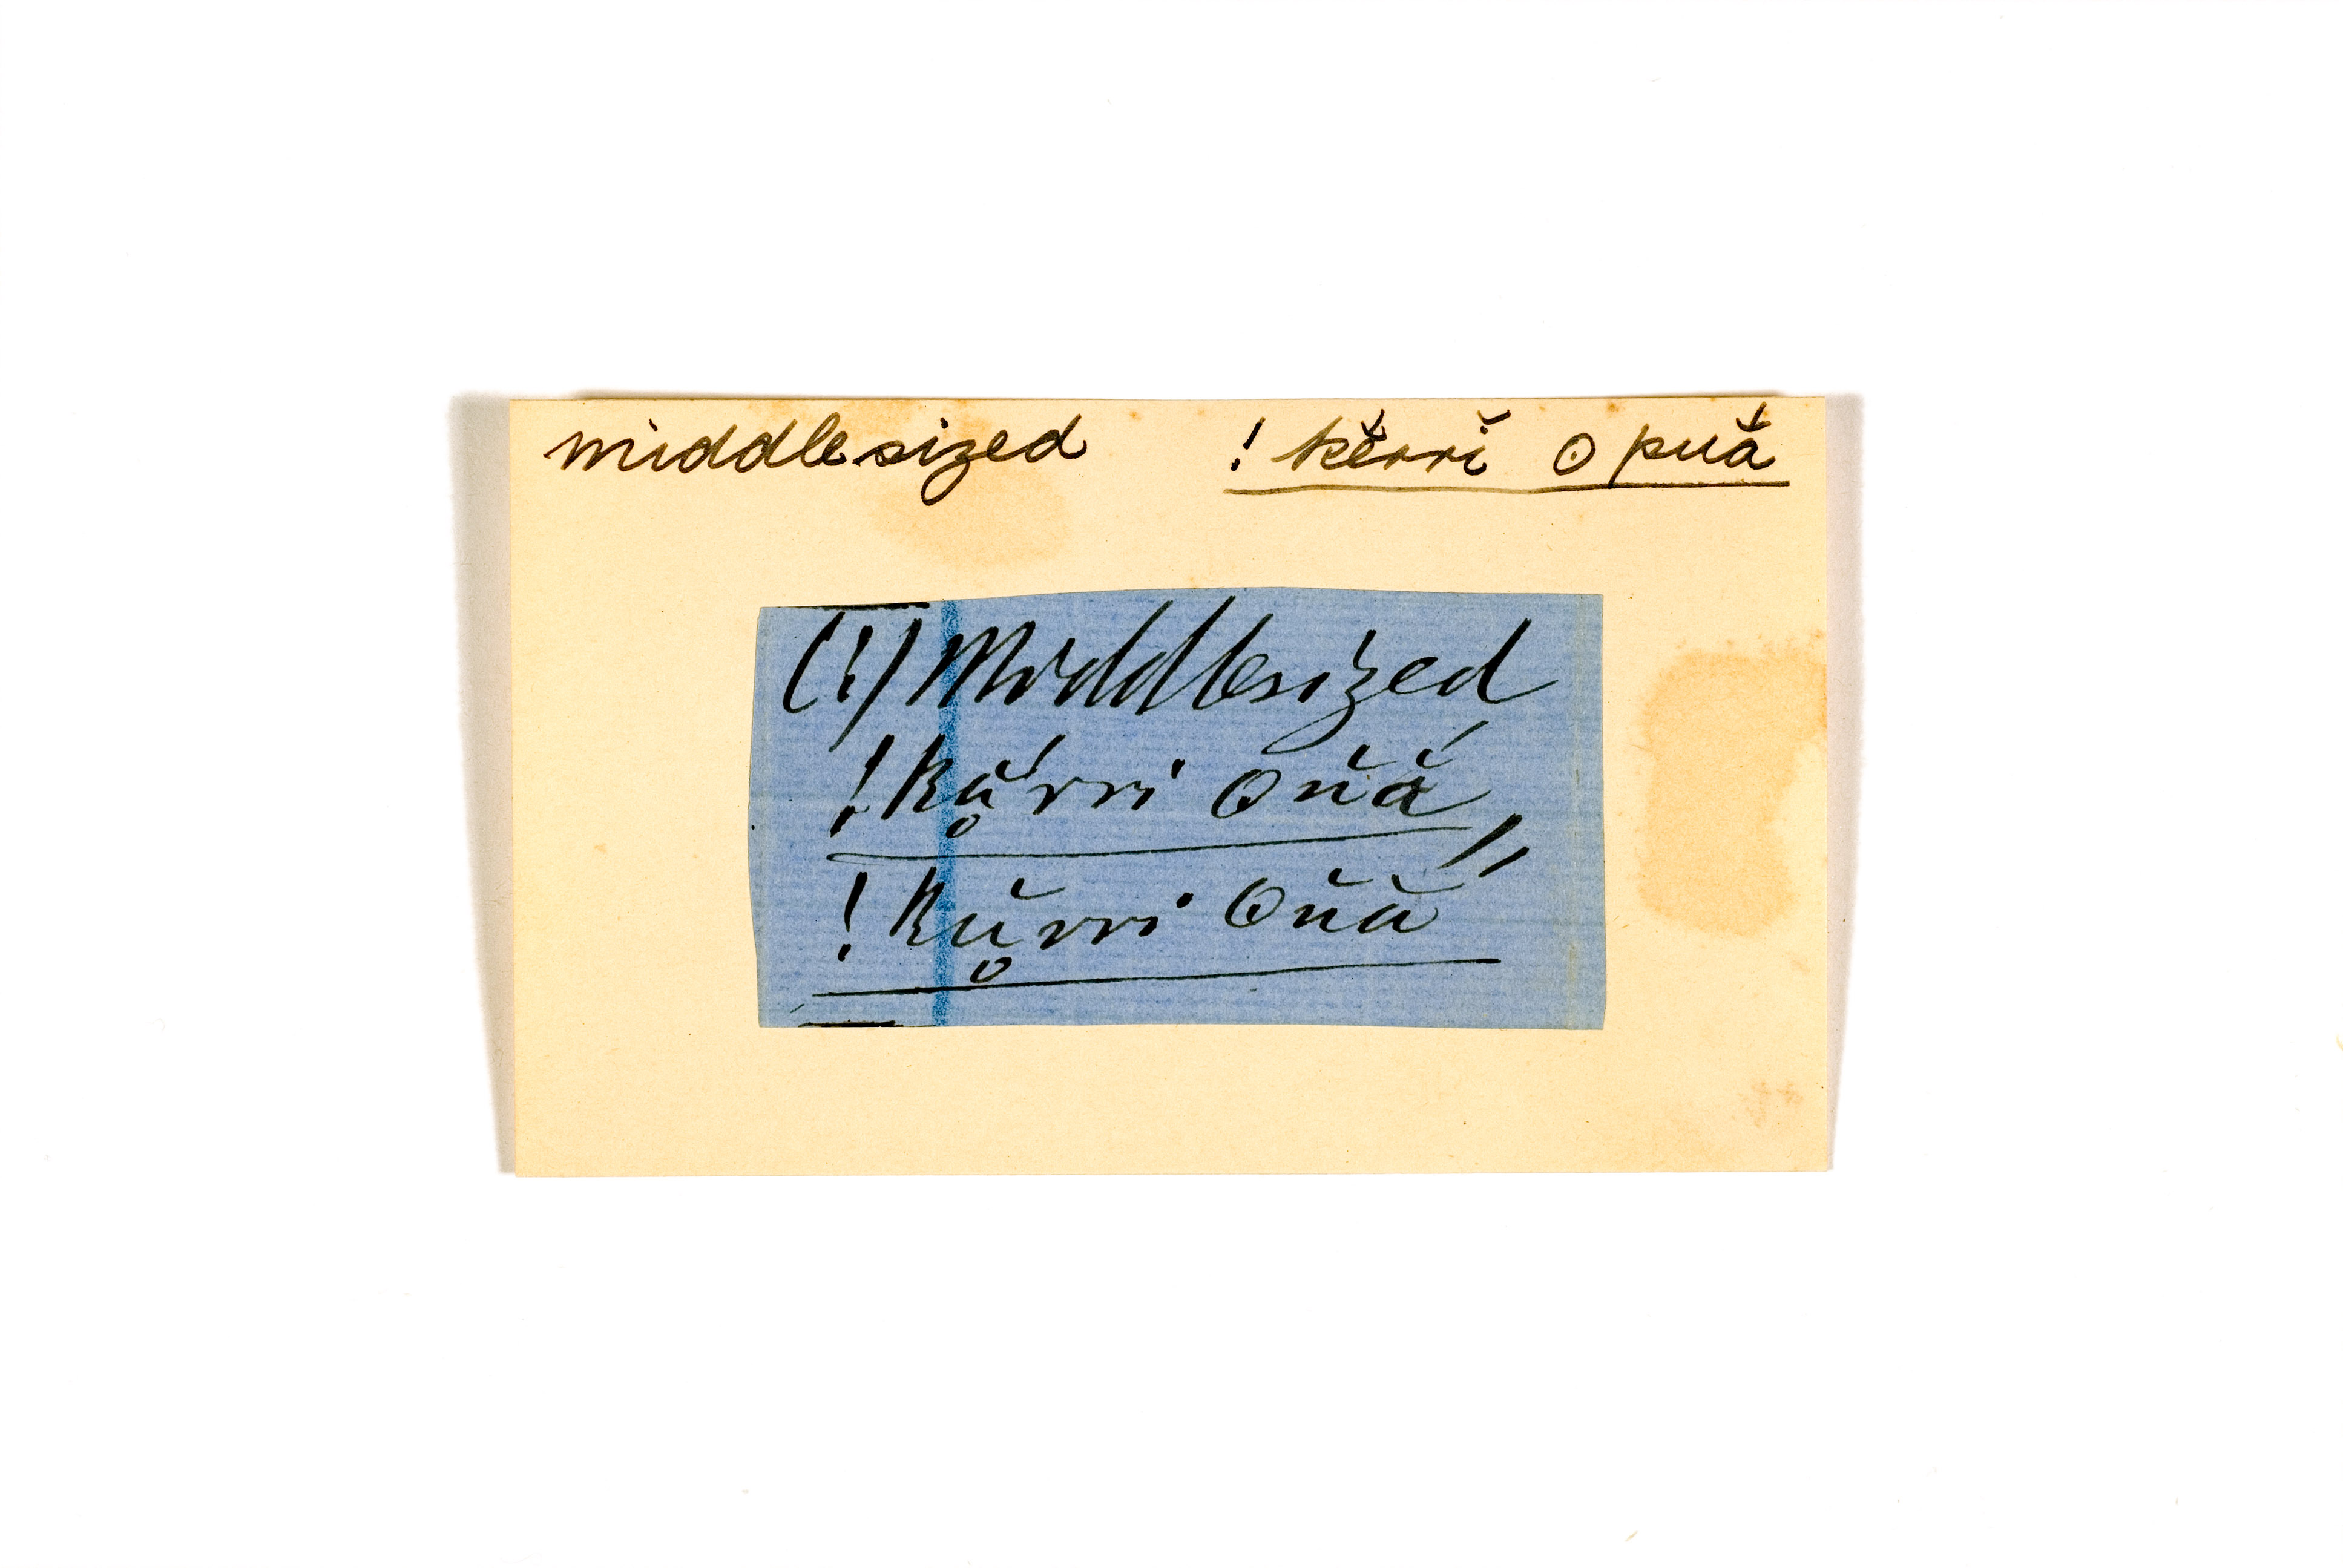 middlesized ! kĕrrĭ ʘ pŭắ
(!) Middlesized
! kḁ̆́rri ʘŭắ,,
! kŭ̥rri ʘŭă